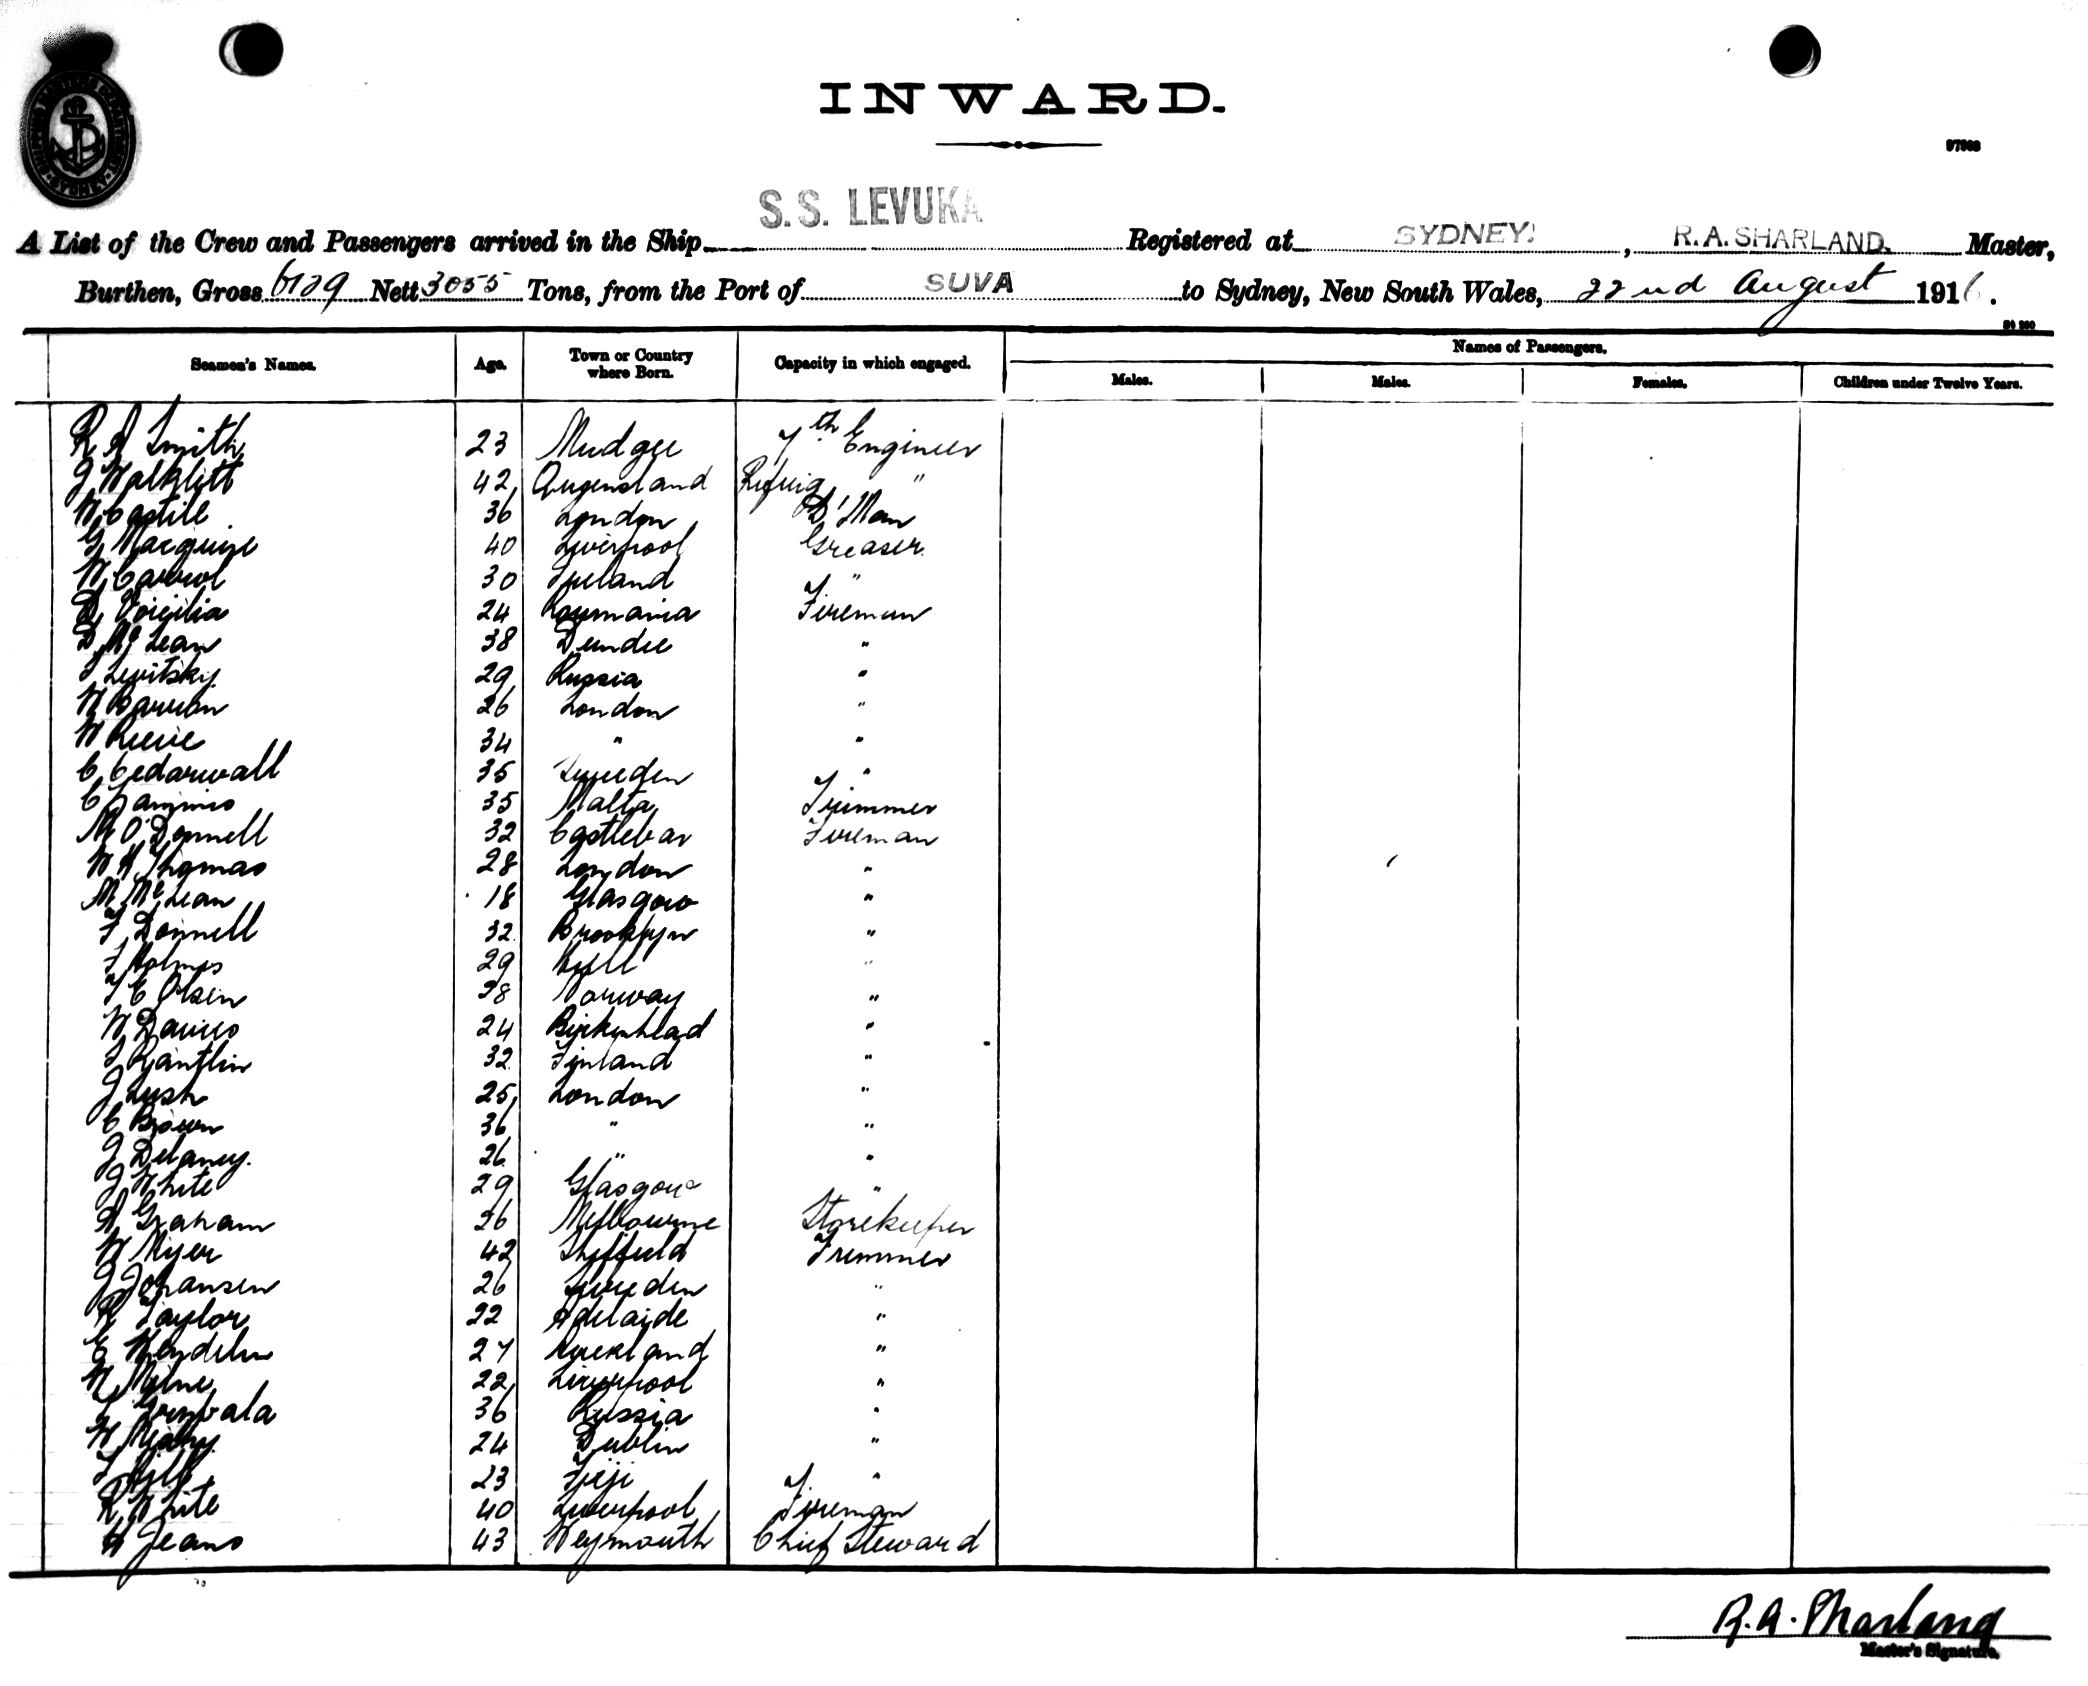 INWARD.
97308
A List of the Crew and Passengers arrived in the Ship S.S. LEVUKA Registered at SYDNEY. , R.A. SHARLAND. Master,
Burthen, Gross 6129 Nett 3055 Tons, from the Port of SUVA to Sydney, New South Wales, 22nd August 1916.
Seamen's Names. Age. Town or Country where Born. Capacity in which engaged. Names of Passengers.
Males. Males. Females. Children under Twelve Years.
R A Smith 23 Mudgee 7th Engineer
J Walklett 42 Queensland Refrig "
W Castill 36 London D'Man
G Macguire 40 Liverpool Greaser
W Carrol 30 Ireland "
D 24 Roumania Fireman
D McLean 38 Dundee "
Levitsky 29 Russia "
W Barron 26 London "
W Reeve 34 " "
C Cedarwall 35 Sweden "
C 35 Malta Trimmer
M O'Donnell 32 Castlebar Fireman
W H Thomas 28 London "
M McLean 18 Glasgow "
F Donnell 32 Brooklyn "
F Holmes 29 Hull "
T C Olsen 28 Norway "
W Davies 24 Birkenhead "
32 Finland "
J Lush 25 London "
C Brown 36 " "
J Delaney. 26 " "
J White 29 Glasgow "
A Graham 26 Melbourne Storekeeper
W Myer 42 Sheffield Trimmer
J Johansen 26 Sweden "
R Taylor 22 Adelaide "
E 27 Auckland "
W Milne 22 Liverpool "
36 Russia "
W 24 Dublin "
Hill 23 Fiji "
R White 40 Liverpool Fireman
H Jeans 43 Weymouth Chief Steward
R.A. Sharland
Master's Signature.